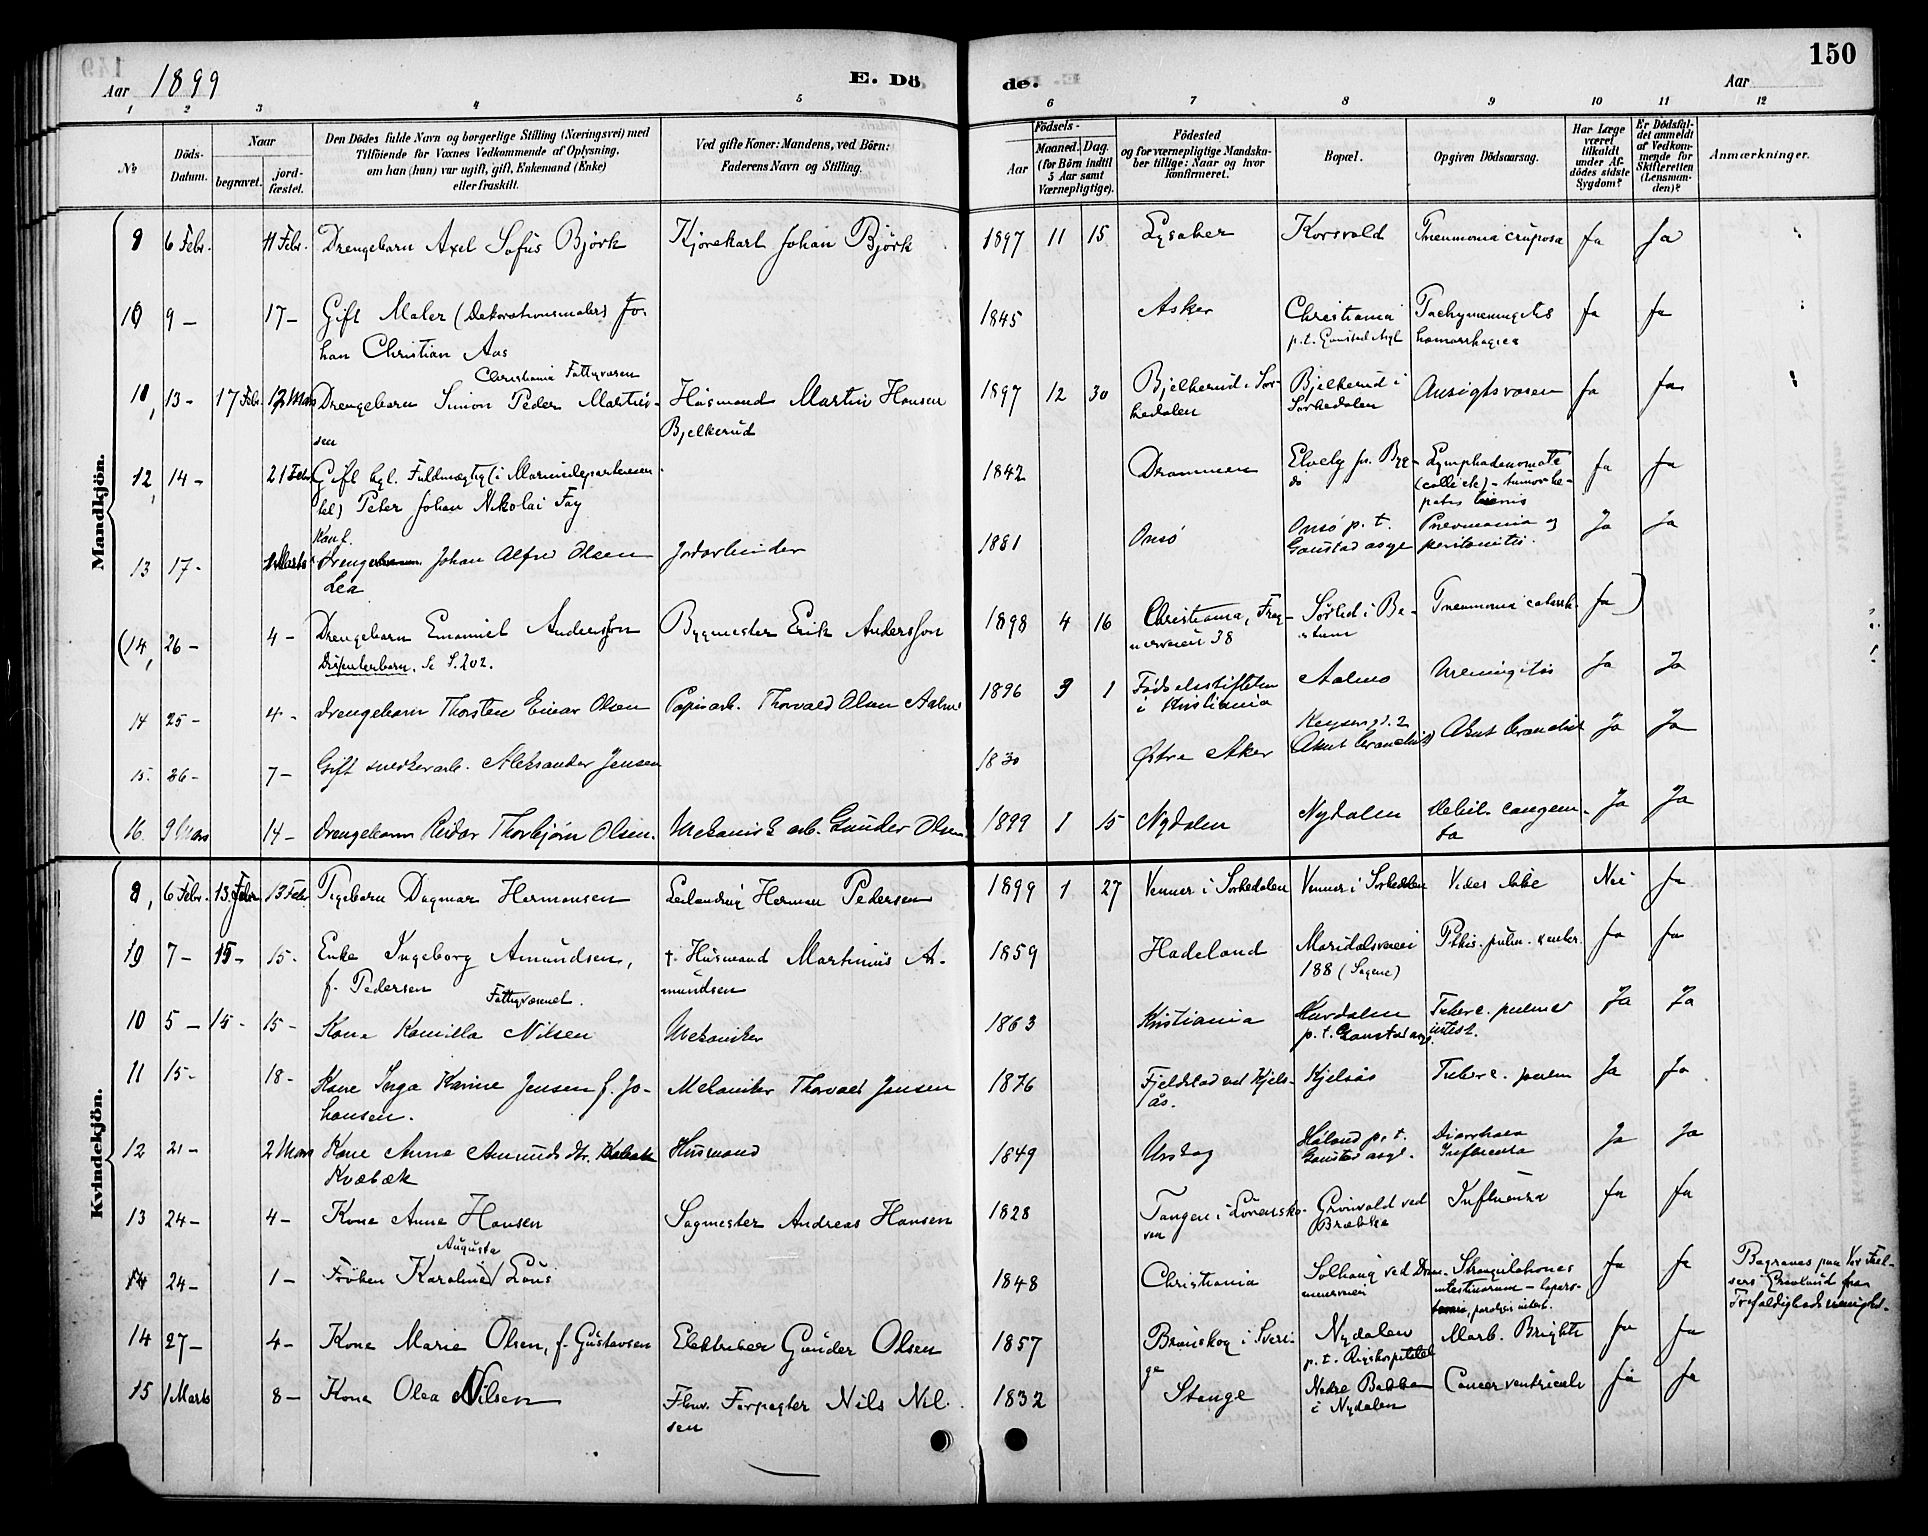 149
Aar 1899
E. Dö de.
150
Aar
1 2 3 4 5 6 7 8 9 10 11 12
No
Döds-Datum.
Naar
begravet.
jord-fæstet.
Den Dödes fulde Navn og borgerlige Stilling (Næringsvei) med
Tilföiende for Voxnes Vedkommende af Oplysning,
om han (hun) var ugift, gift, Enkemand (Enke)
eller fraskilt.
Ved gifte Koner: Mandens, ved Börn:
Faderens Navn og Stilling.
Födsels-
Aar
Maaned. Dag.
(for Börn indtil
5 Aar samt
Værnepligtige).
Födested
og for værnepligtige Mandska-
ber tillige: Naar og hvor
konfirmeret.
Bopæl.
Opgiven Dödsaarsag.
Har Læge
været
tilkaldt
under Af-
dödes sidste
Sygdom?
Er Dödsfal-
det anmeldt
af Vedkom-
mende for
Skifteretten
(Lensman-
den)?
Anmærkninger.
Mandkjön.
9 6 Febr. 11 Febr. Drengebarn Axel Sofus Björk Kjörekarl Johan Björk 1897 11 15 Lysaker Korsvold Pneumonia cruposa Ja Ja
10 9 – 17 – Gift Maler (Dekorationsmaler) Jo- 1845 Asker Christiania Pachymeningitis Ja Ja
han Christian Aas p.t. Gaustad Asyl hæmorrhagica
Christiania Fattigvæsen
11, 13 – 17 Febr. 12 Mars Drengebarn Simon Peder Martin- Husmand Martin Hansen 1897 12 30 Bjelkerud i Sör- Bjelkerud i Ansigtsrosen Ja Ja
sen Bjelkerud kedalen Sörkedalen
12, 14 – 21 Febr. Gift kgl. Fuldmægtig (i Marinedepartemen- 1842 Drammen Elvely pr. Byg- Lymphadenomata Ja Ja
tet) Peter Johan Nikolai Fay dö (colli etc) – tumor he-
patis lienis
13 17 – Marts Johan Alfred Olsen Jordarbeider 1881 Onsö Onsö p.t. Pneumonia og Ja Ja
Lea Gaustad asyl peritonitis.
(14, 26 – 4 – Drengebarn Emanuel Andersson Bygmester Erik Andersson 1898 4 16 Christiania, Frog- Sörlid i Be- Pneumonia catarrh. Ja)
Dissenterbarn. Se S. 202. nerveien 38 stum
14 25 – 4 – Drengebarn Thorsten Einar Olsen Papirarb. Thorvald Olsen 1896 3 1 Födselsstiftelsen Meningitis Ja Ja
i Kristiania
15. 26 – 7 – Gift snedkerarb. Aleksander Jensen 1830 Østre Aker Keysersgt. 2 Akut bronchit Ja Ja
(Akut bronchit)
16. 9 Mars 14 – Drengebarn Reidar Thorbjørn Olsen. Mekanisk arb. Gunder Olsen 1899 1 15 Nydalen Nydalen Debil. congeni- Ja Ja
ta
Kvindekjön.
8, 6 Febr. 13 Febr. 13 Febr. Pigebarn Dagmar Hermansen Leilænding Herman Pedersen 1899 1 27 Venner i Sörkedalen Venner i Sörkedalen Vides ikke Nei Ja
19 7 – 15 – 15 – Enke Ingeborg Amundsen, † Husmand Martinius A- 1859 Hadeland Maridalsveien Pthis. pulm. Ja Ja
f. Pedersen mundsen 188 (Sagene)
Fattigvæsenet.
10 5 – 15 – 15 – Kone Kamilla Nilsen Mekaniker 1863 Kristiania Hurdalen Tuberc. pulm. Ja Ja
p.t. Gaustad asyl. intest.
11 15 – 18 – Kone Inga Karine Jensen f. Jo- Mekaniker Thorvald Jensen 1876 Fjeldstad ved Kjels- Kjelsås Tuberc. pulm Ja Ja
hansen. ås.
12 21 – 2 Mars Kone Anne Amundsdtr. Husmand 1849 Urskog Høland p.t. Diarrhoea Ja Ja
Kvæbæk Gaustad asyl. Influenza
13 24 – 4 – Kone Anne Hansen Sagmester Andreas Hansen 1828 Tangen i Lörensko- Grönvold ved Influenza Ja Ja
ven Brække
Augusta
24 – 1 – Fröken Karoline Lous 1848 Christiania Solhaug ved Dram- Strangulationes Ja Ja Begraves paa Vor Frel-
mensveien intestinorum – laparo- sers Gravlund fra
tomia, paralysis intest. Trefoldighedsmenighed.
14 27 – 4 – Kone Marie Olsen, f. Gustavsen Elektriker Gunder Olsen 1857 Brunskog i Sveri- Nydalen Morb. Brightii Ja Ja
ge p.t. Rigshospitalet
15 1 Marts 8 – Kone Olea Nilsen Forpagter Nils Nil- 1832 Stange Nedre Bakke Cancer ventriculi Ja Ja
sen i Nydalen